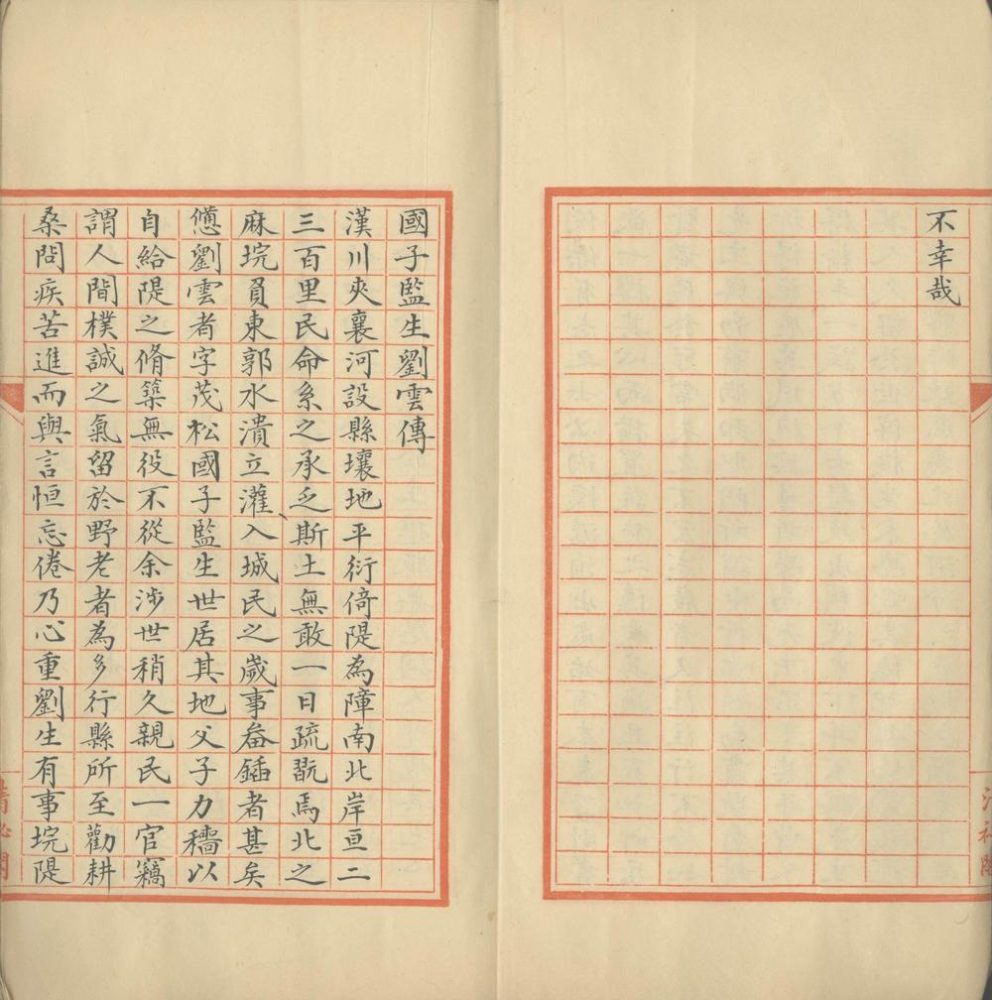 不幸哉
國子監生劉雲傳
漢川夾襄河設縣壤地平衍倚隄為障南北岸亘二
三百里民命系之承乏斯土無敢一日疏翫焉北之
麻垸員東郭水潰立灌入城民之歲事畚鍤者甚矣
憊劉雲者字茂松國子監生世居其地父子力穡以
自給隄之脩築無役不從余涉世稍久親民一官竊
謂人間樸誠之氣留於野老者為多行縣所至勸耕
桑問疾苦進而與言恒忘倦乃心重劉生有事垸隄
清祕閣